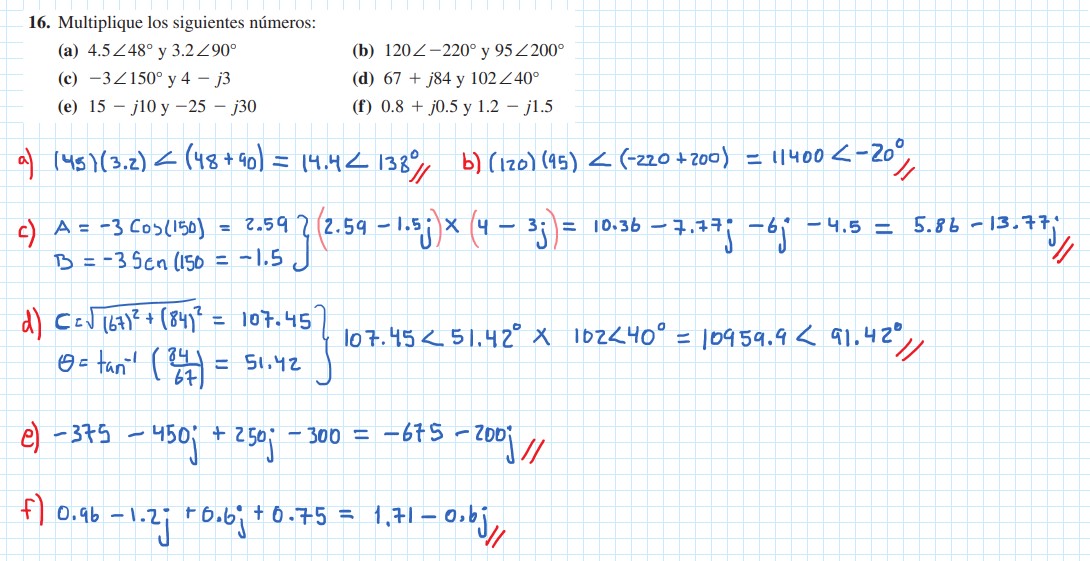 16. Multiplique los siguientes números:
(a) 4.5∠48° y 3.2∠90° (b) 120∠−220° y 95∠200°
(c) −3∠150° y 4 − j3 (d) 67 + j84 y 102∠40°
(e) 15 − j10 y −25 − j30 (f) 0.8 + j0.5 y 1.2 − j1.5
a) (45)(3.2) ∠ (48 + 90) = 14.4 ∠ 138° // b) (120) (95) ∠ (-220 + 200) = 11400 ∠ -20° //
c) A = -3 Cos(150) = 2.59 } (2.59 - 1.5j) × (4 - 3j) = 10.36 - 7.77j - 6j - 4.5 = 5.86 - 13.77j //
B = -3 Sen (150 = -1.5
d) C = √(67)² + (84)² = 107.45 } 107.45 ∠ 51.42° × 102∠40° = 10959.9 ∠ 91.42° //
θ = tan⁻¹ (84/67) = 51.42
e) -375 - 450j + 250j - 300 = -675 - 200j //
f) 0.96 - 1.2j + 0.6j + 0.75 = 1.71 - 0.6j //